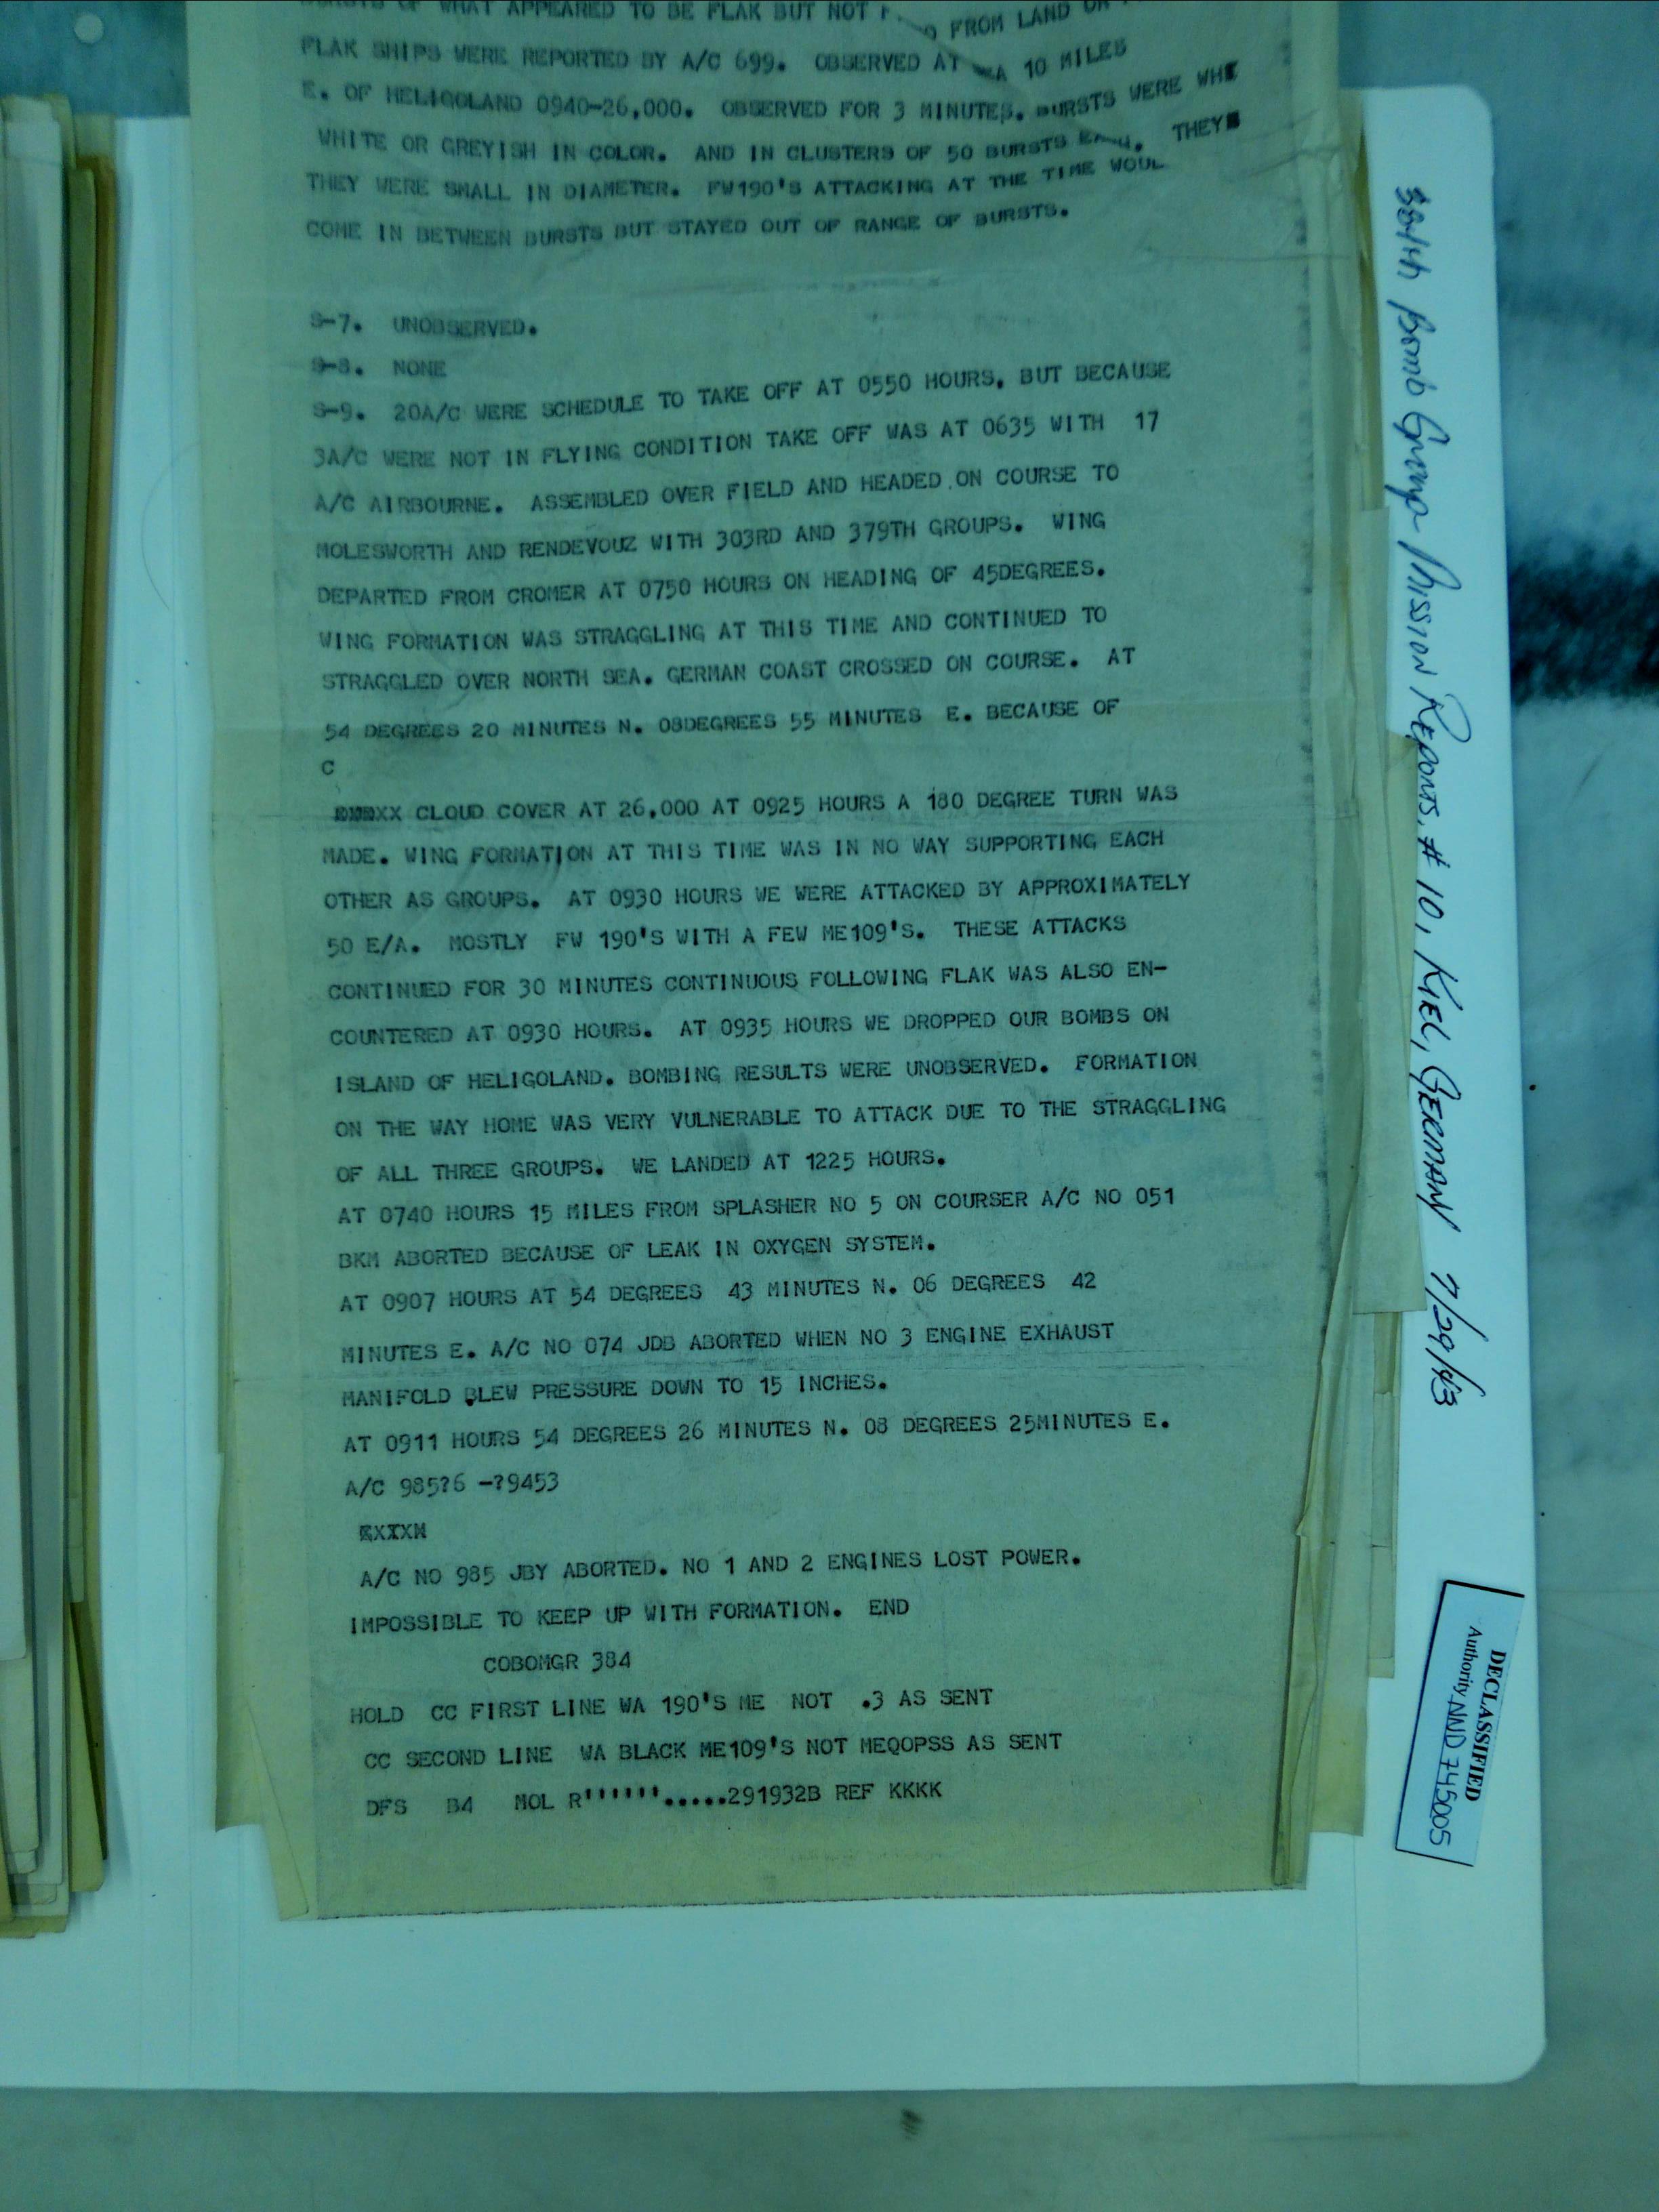 OF WHAT APPEARED TO BE FLAK BUT NOT FROM LAND
FLAK SHIPS WERE REPORTED BY A/C 699. OBSERVED AT 10 MILES
E. OF HELIGOLAND 0940-26,000. OBSERVED FOR 3 MINUTES. BURSTS WERE WHE
WHITE OR GREYISH IN COLOR. AND IN CLUSTERS OF 50 BURSTS THEY
THEY WERE SMALL IN DIAMETER. FW190'S ATTACKING AT THE TIME WOUL
COME IN BETWEEN BURSTS BUT STAYED OUT OF RANGE OF BURSTS.
S-7. UNOBSERVED.
S-8. NONE
S-9. 20A/C WERE SCHEDULE TO TAKE OFF AT 0550 HOURS. BUT BECAUSE
3A/C WERE NOT IN FLYING CONDITION TAKE OFF WAS AT 0635 WITH 17
A/C AIRBOURNE. ASSEMBLED OVER FIELD AND HEADED ON COURSE TO
MOLESWORTH AND RENDEVOUZ WITH 303RD AND 379TH GROUPS. WING
DEPARTED FROM CROMER AT 0750 HOURS ON HEADING OF 45DEGREES.
WING FORMATION WAS STRAGGLING AT THIS TIME AND CONTINUED TO
STRAGGLED OVER NORTH SEA. GERMAN COAST CROSSED ON COURSE. AT
54 DEGREES 20 MINUTES N. 08DEGREES 55 MINUTES E. BECAUSE OF
C
CLOUD COVER AT 26,000 AT 0925 HOURS A 180 DEGREE TURN WAS
MADE. WING FORMATION AT THIS TIME WAS IN NO WAY SUPPORTING EACH
OTHER AS GROUPS. AT 0930 HOURS WE WERE ATTACKED BY APPROXIMATELY
50 E/A. MOSTLY FW 190'S WITH A FEW ME109'S. THESE ATTACKS
CONTINUED FOR 30 MINUTES CONTINUOUS FOLLOWING FLAK WAS ALSO EN-
COUNTERED AT 0930 HOURS. AT 0935 HOURS WE DROPPED OUR BOMBS ON
ISLAND OF HELIGOLAND. BOMBING RESULTS WERE UNOBSERVED. FORMATION
ON THE WAY HOME WAS VERY VULNERABLE TO ATTACK DUE TO THE STRAGGLING
OF ALL THREE GROUPS. WE LANDED AT 1225 HOURS.
AT 0740 HOURS 15 MILES FROM SPLASHER NO 5 ON COURSER A/C NO 051
BKM ABORTED BECAUSE OF LEAK IN OXYGEN SYSTEM.
AT 0907 HOURS AT 54 DEGREES 43 MINUTES N. 06 DEGREES 42
MINUTES E. A/C NO 074 JDB ABORTED WHEN NO 3 ENGINE EXHAUST
MANIFOLD BLEW PRESSURE DOWN TO 15 INCHES.
AT 0911 HOURS 54 DEGREES 26 MINUTES N. 08 DEGREES 25MINUTES E.
A/C 985?6 -?9453
A/C NO 985 JBY ABORTED. NO 1 AND 2 ENGINES LOST POWER.
IMPOSSIBLE TO KEEP UP WITH FORMATION. END
COBOMGR 384
HOLD CC FIRST LINE WA 190'S ME NOT .3 AS SENT
CC SECOND LINE WA BLACK ME109'S NOT MEQOPSS AS SENT
DFS B4 MOL R''''''.....291932B REF KKKK
384th Bomb Group Mission Reports, # 10, KIEL, GERMANY 7/29/43
DECLASSIFIED
Authority NND 745005